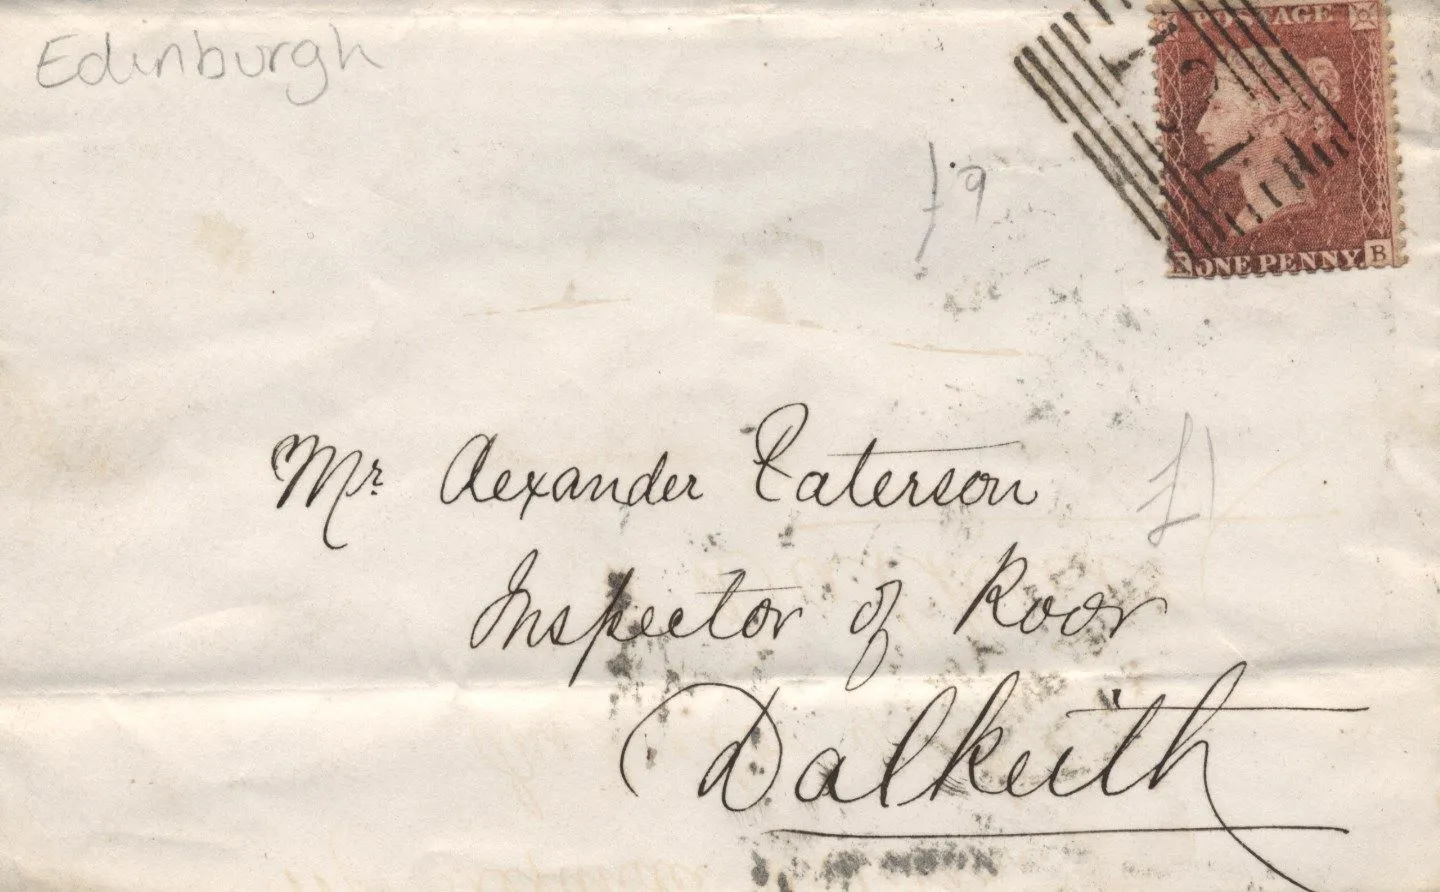 Edinburgh
POSTAGE
£9
ONE PENNY. B
Mr. Alexander Paterson
£1
Inspector of Poor
Dalkeith